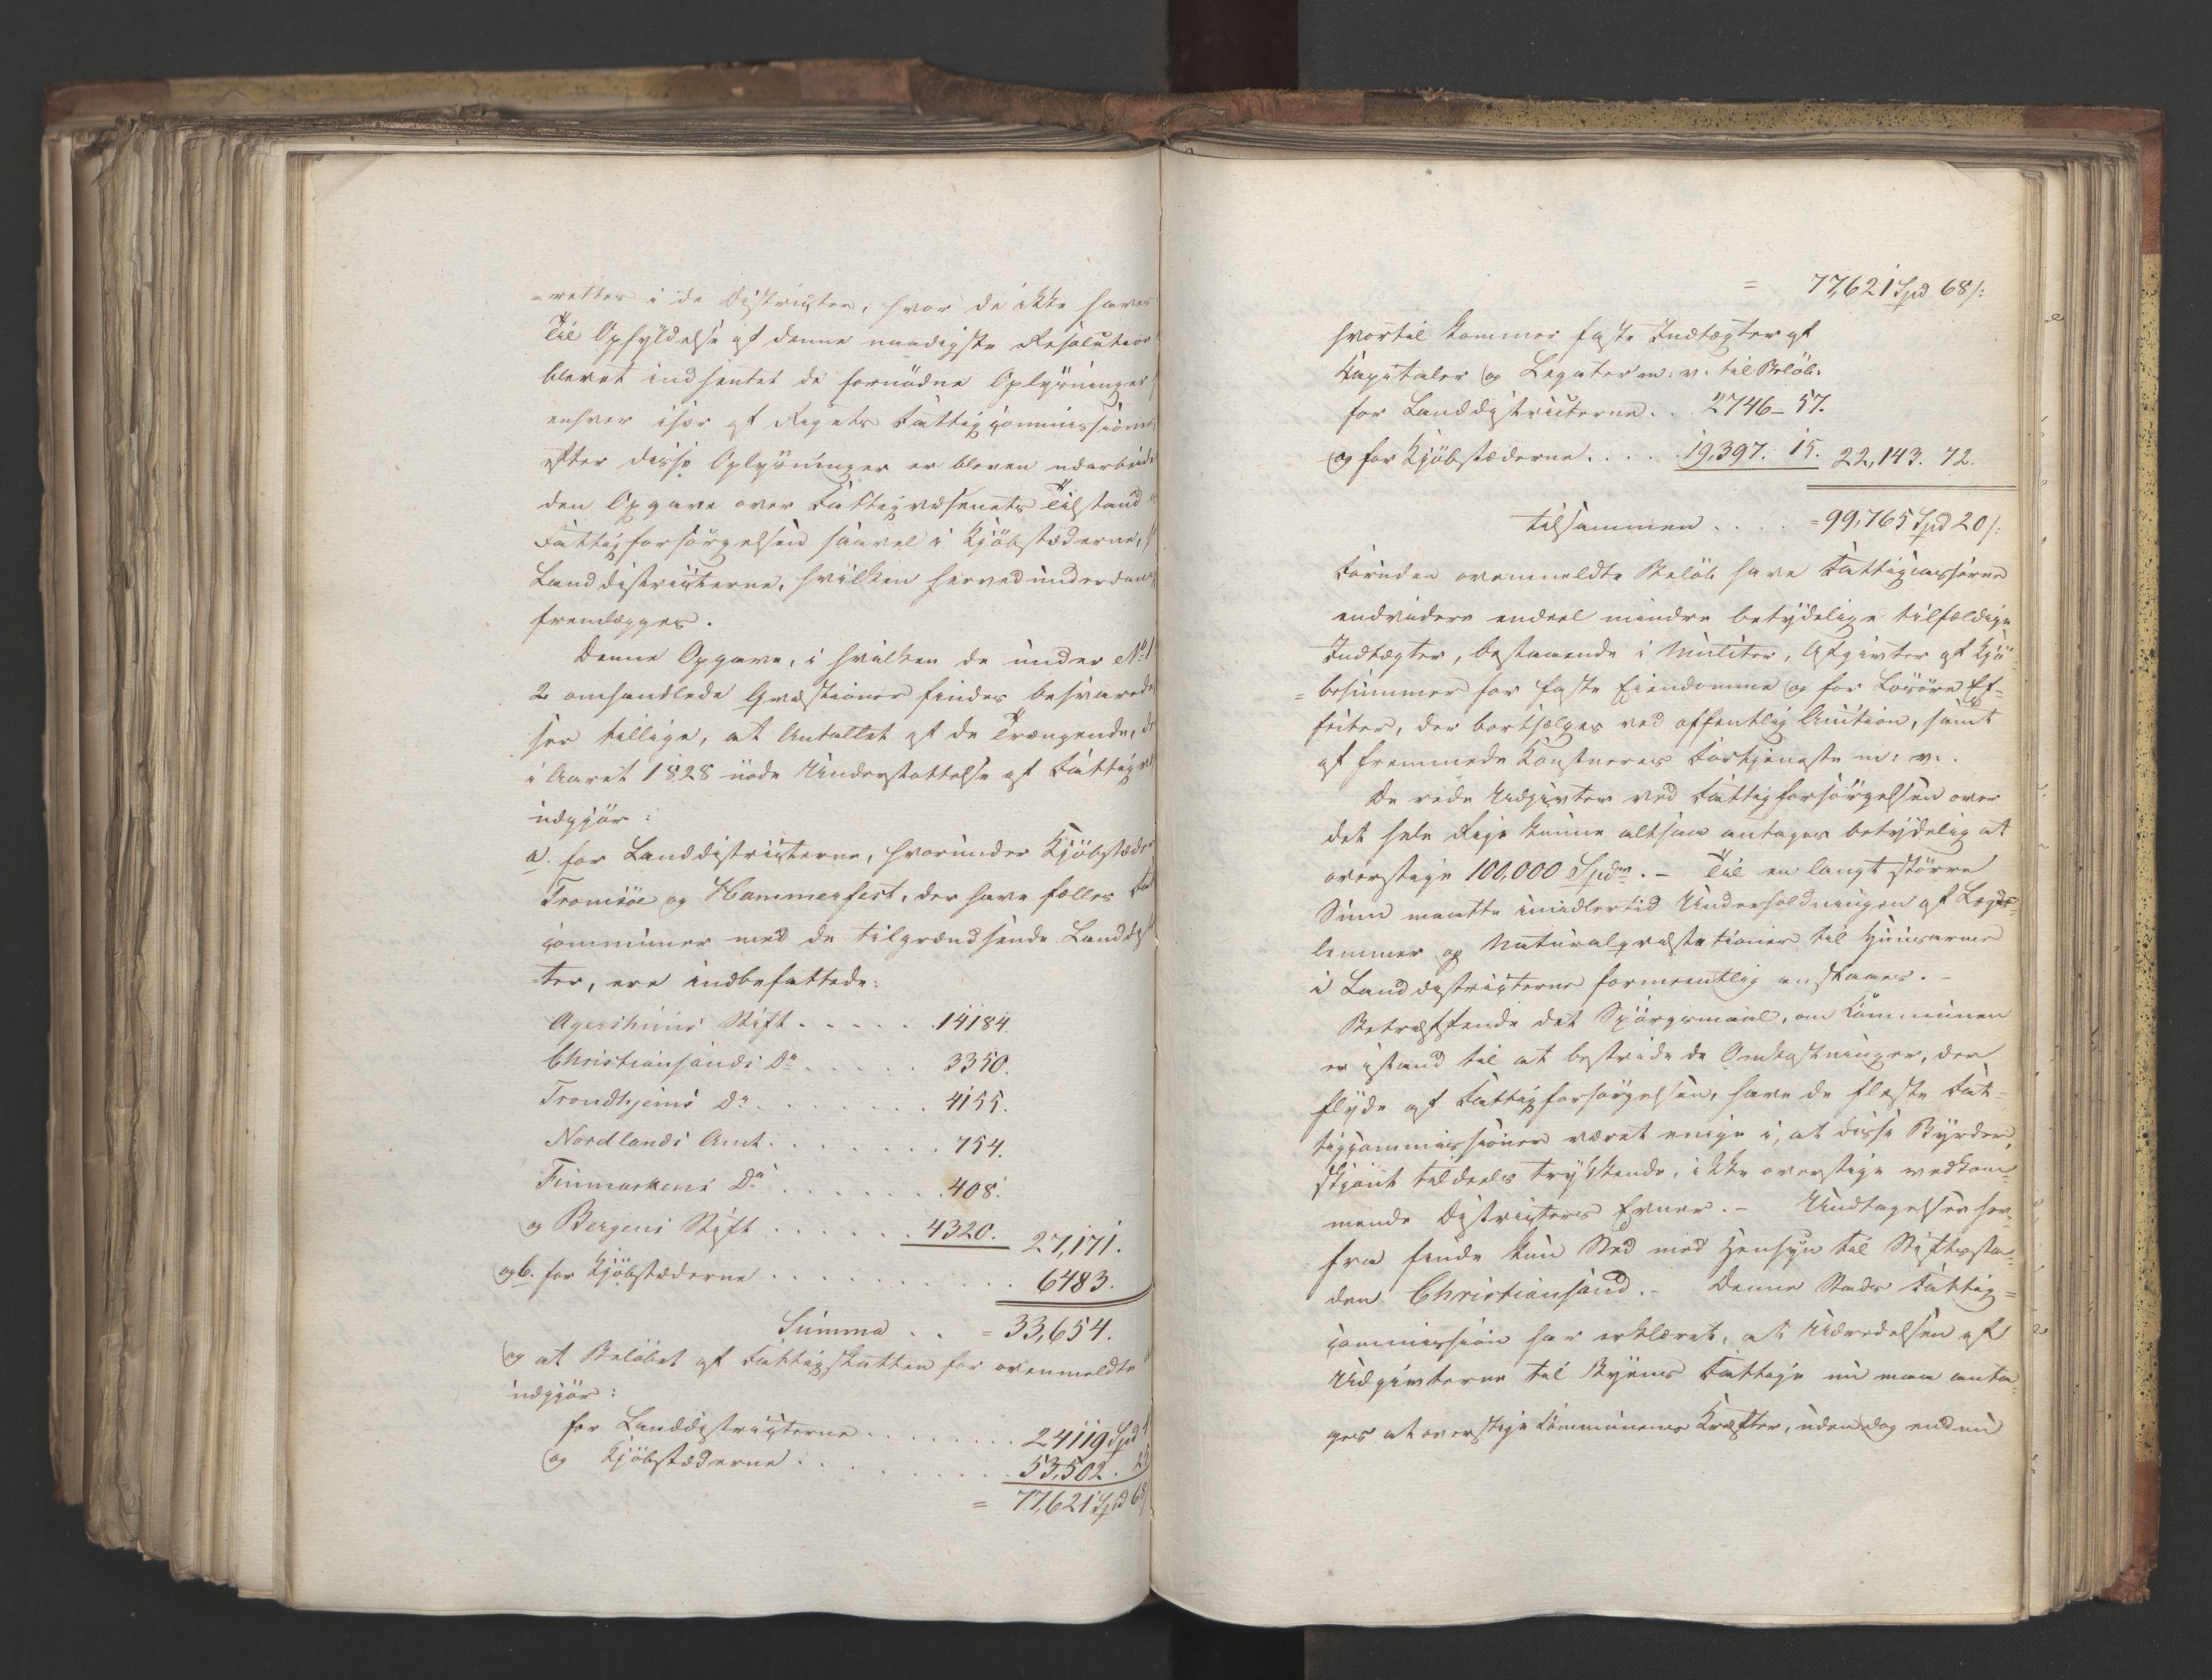 -rettes i de Districter, hvor de ikke haves
Til Opfyldelse af denne naadigste Resolution
blevet indhentet de fornødne Oplysninger
enhver især af Rigets Fattigcommissioner,
efter disse Oplysninger er bleven udarbeide
den Opgave over Fattigvæsenets Tilstand
Fattigforsørgelsen saavel i Kjøbstæderne,
Landdistricterne, hvilken herved underdanig
fremlægges.
Denne Opgave, i hvilken de under No 1
2 omhandlede Qvæstioner findes besvarede
ser tillige, at Antallet af de Trængende, der
i Aaret 1828 nøde Understøttelse af Fattigv
udgjør:
a. for Landdistricterne, hvorunder Kjøbstæder
Tromsöe og Hammerfest, der have fælles Fat
commüner med de tilgrændsende Landdist
ter, ere indbefattede:
Agershuus Stift . . . . . 14184.
Christiansands Do . . . . . 3350.
Trondhjems Do . . . . . . . 4155.
Nordlands Amt . . . . . . . 754.
Finmarkens Do . . . . . . . 408.
og Bergens Stift . . . . . . 4320. 27,171.
og b. for Kjøbstæderne . . . . . . . . . . . 6483.
Summa . . = 33,654.
og at Beløbet af Fattigskatten for ovenmeldte
udgjør:
for Landdistricterne . . . . . . . . 24119 Spd
og Kjøbstæderne . . . . . . . . . . 53,502.
= 77,621 Spd 68
= 77,621 Spd 68/:
hvortil kommer faste Indtægter af
Kapitaler og Legater m. v. til Beløb:
for Landdistricterne . . 2746 - 57.
og for Kjøbstæderne . . . . . 19,397. 15. 22,143. 72.
tilsammen . . . . = 99,765 Spd 20/:
Foruden ovenmeldte Beløb have Fattigcasserne
endvidere endeel mindre betydelige tilfældige
Indtægter, bestaaende i Mulcter, Afgivter af Kjø-
=besummer for faste Eiendomme og for Løsøre Ef-
fecter, der bortsælges ved offentlig Auction, samt
af fremmede Konstneres Fortjeneste m: v:.
De rede Udgivter ved Fattigforsørgelsen over
det hele Rige kunne altsaa antages betydelig at
overstige 100,000 Spdr. - Til en langt større
Sum maatte imidlertid Underholdningen af Lægds-
lemmer og Naturalpræstationer til Huusarme
i Landdistricterne formeentlig anslaaes. -
Betræffende det Spørgsmaal, om Communen
er istand til at bestride de Omkostninger, der
flyde af Fattigforsørgelsen, have de fleste Fat-
tigcommissioner været enige i, at disse Byrder,
skjønt tildeels trykkende, ikke overstige vedkom-
mende Districters Evner. - Undtagelser her-
fra finde kun Sted med Hensyn til Stiftssta-
den Christiansand. - Denne Stads Fattig-
commission har erklæret, at Udredelsen af
Udgivterne til Byens Fattige nu maa anta-
ges at overstige Communens Kræfter, uden dog endnu